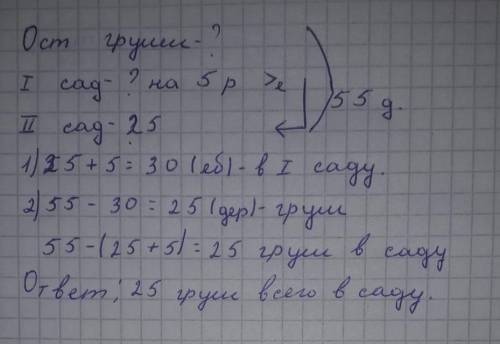 Ост груши - ?
I сад - ? на 5 р >, 55 д.
II сад - 25
1) 25 + 5 = 30 (яб) - в I саду.
2) 55 - 30 = 25 (дер) - груш
55 - (25 + 5) = 25 груш в саду
Ответ: 25 груш всего в саду.